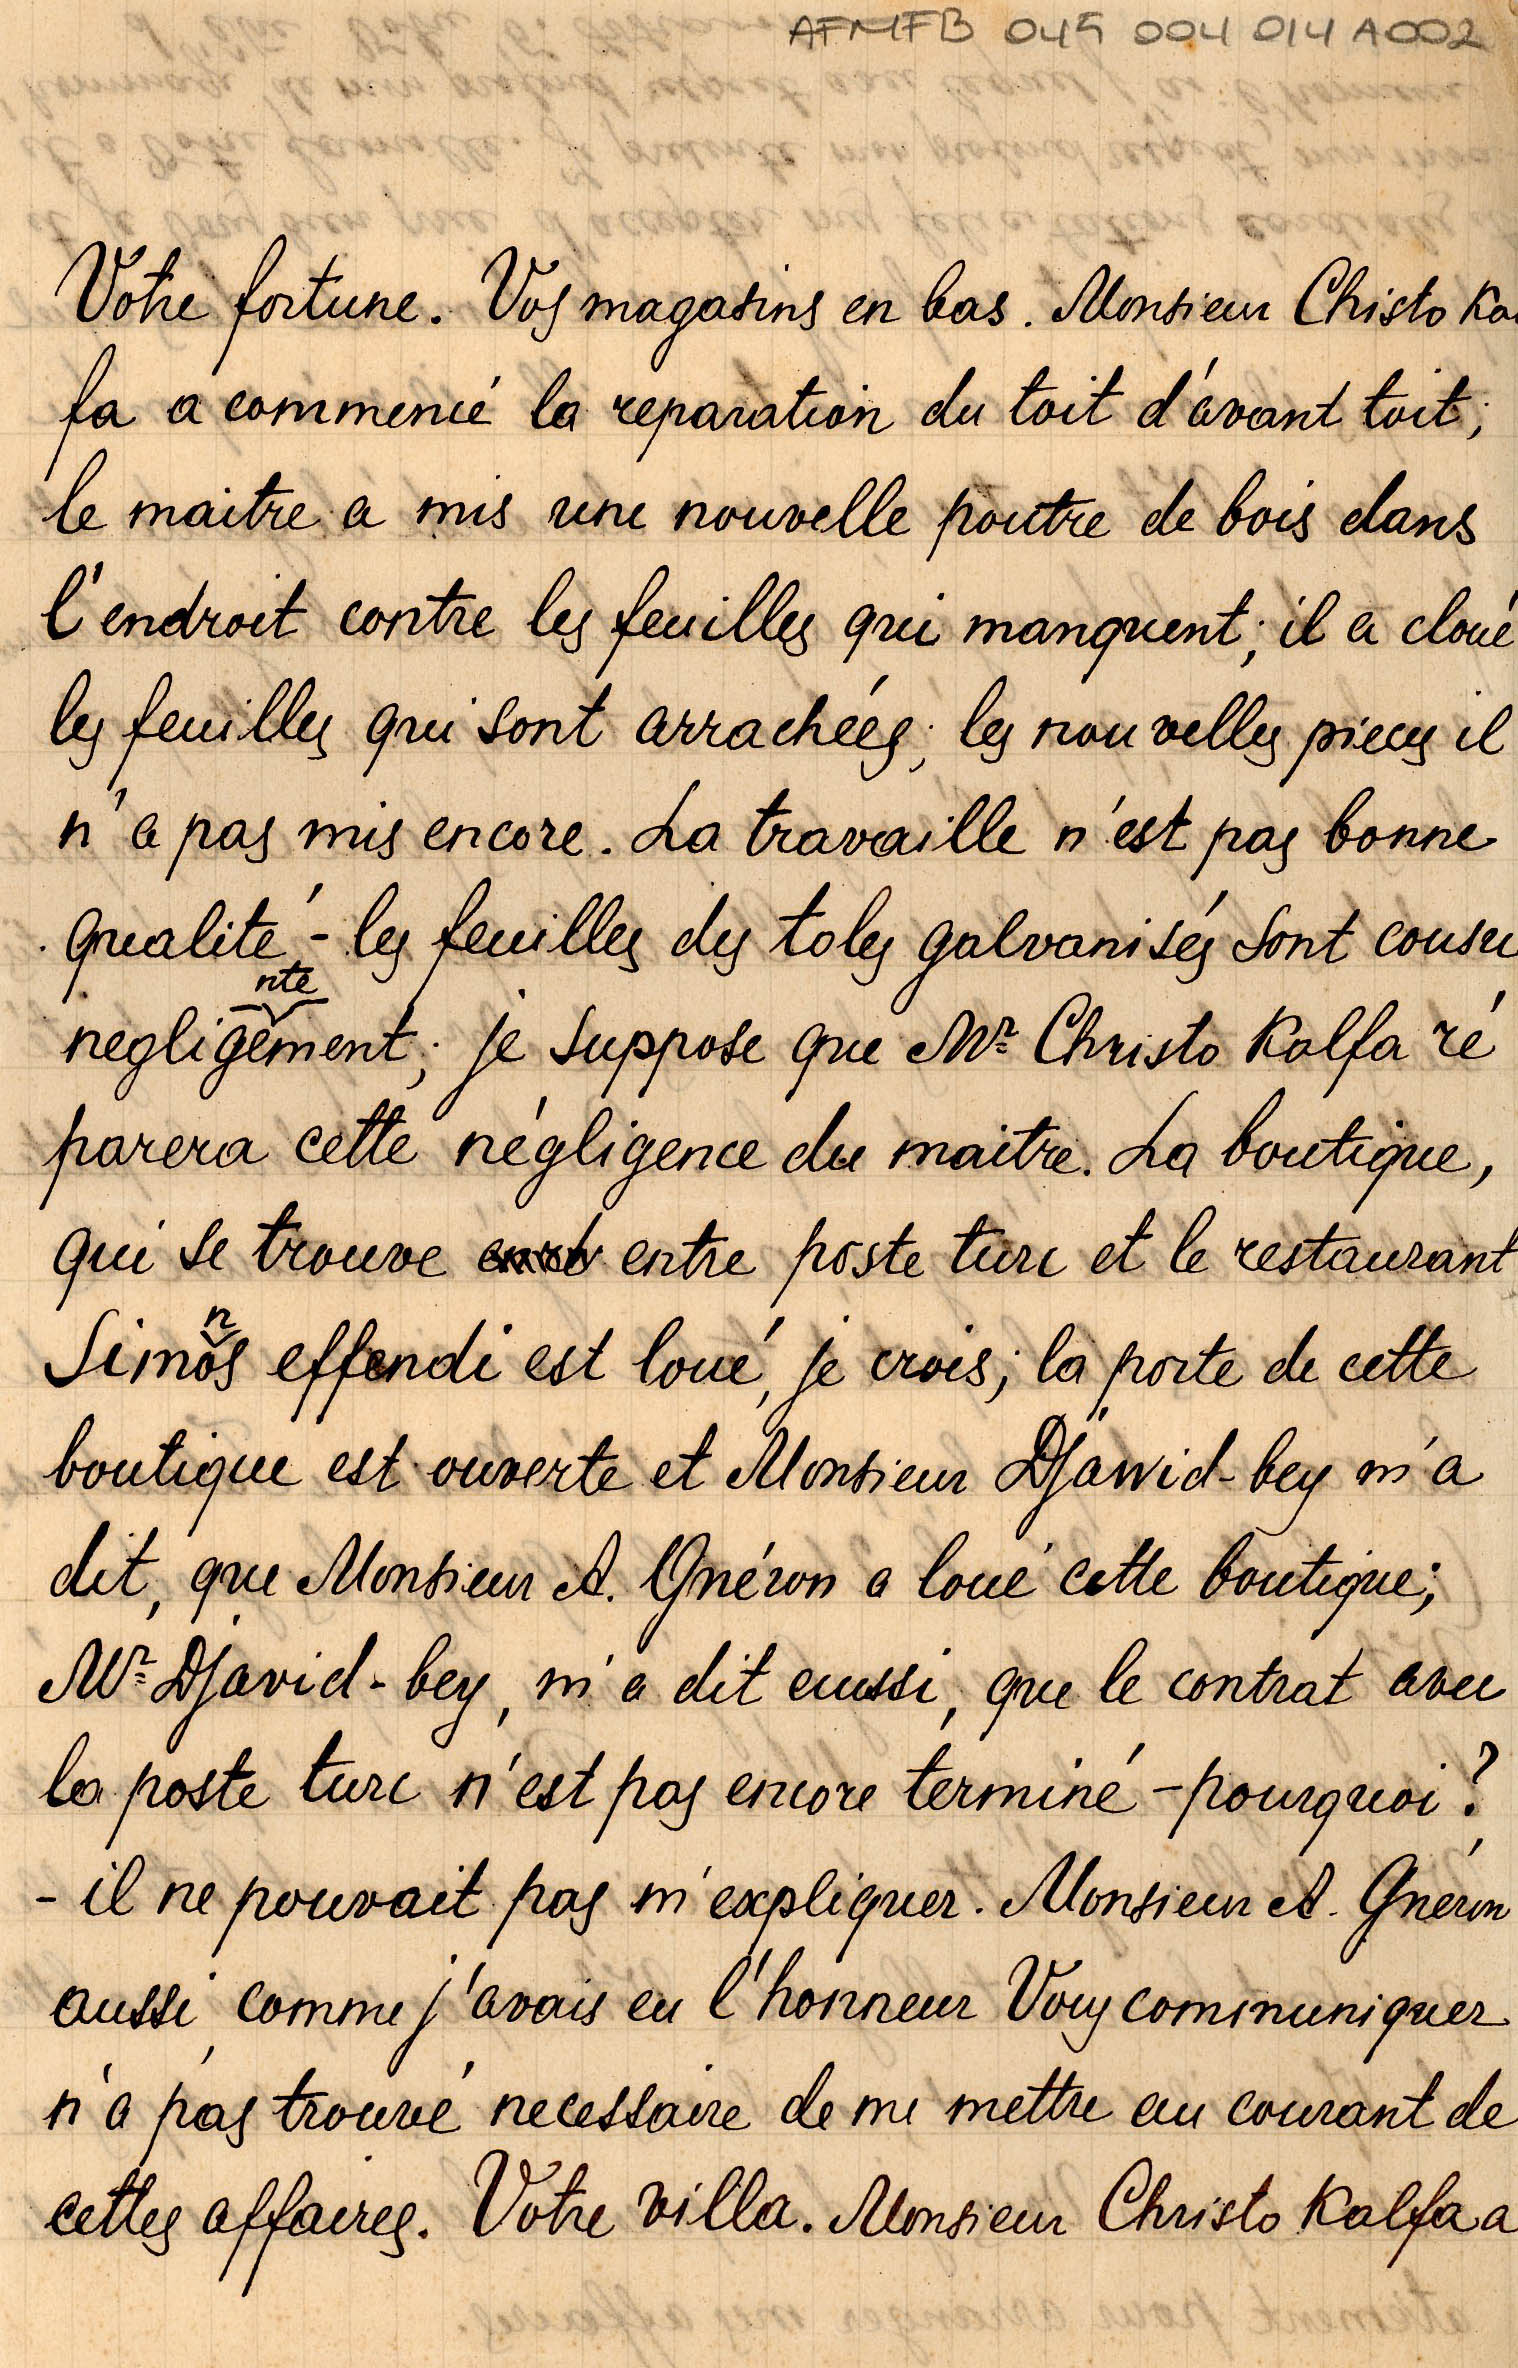 AFMFB 045 004 014 A002
Votre fortune. Vos magasins en bas. Monsieur Chisto Ka
fa a commencé la reparation du toit d'avant toit;
le maitre a mis une nouvelle poutre de bois dans
l'endroit contre les feuilles qui manquent; il a cloué
les feuilles qui sont arrachées; les nouvelles pieces il
n'a pas mis encore. La travaille n'est pas bonne
qualité - les feuilles des toles galvanisés sont cousu
nte
negligement; je suppose que Mr Christo Kalfa ré
parera cette négligence du maitre. La boutique,
qui se trouve entre poste turc et le restaurant
n
Simos effendi est loué, je crois; la porte de cette
boutique est ouverte et Monsieur Djawid-bey m'a
dit, que Monsieur A. Gnéron a loué cette boutique;
Mr Djavid-bey, m'a dit aussi, que le contrat avec
la poste turc n'est pas encore terminé - pourquoi?
- il ne pouvait pas m'expliquer. Monsieur A. Gnéron
aussi, comme j'avais eu l'honneur Vous communiquer
n'a pas trouvé necessaire de me mettre au courant de
cettes affaires. Votre villa. Monsieur Christo Kalfa a